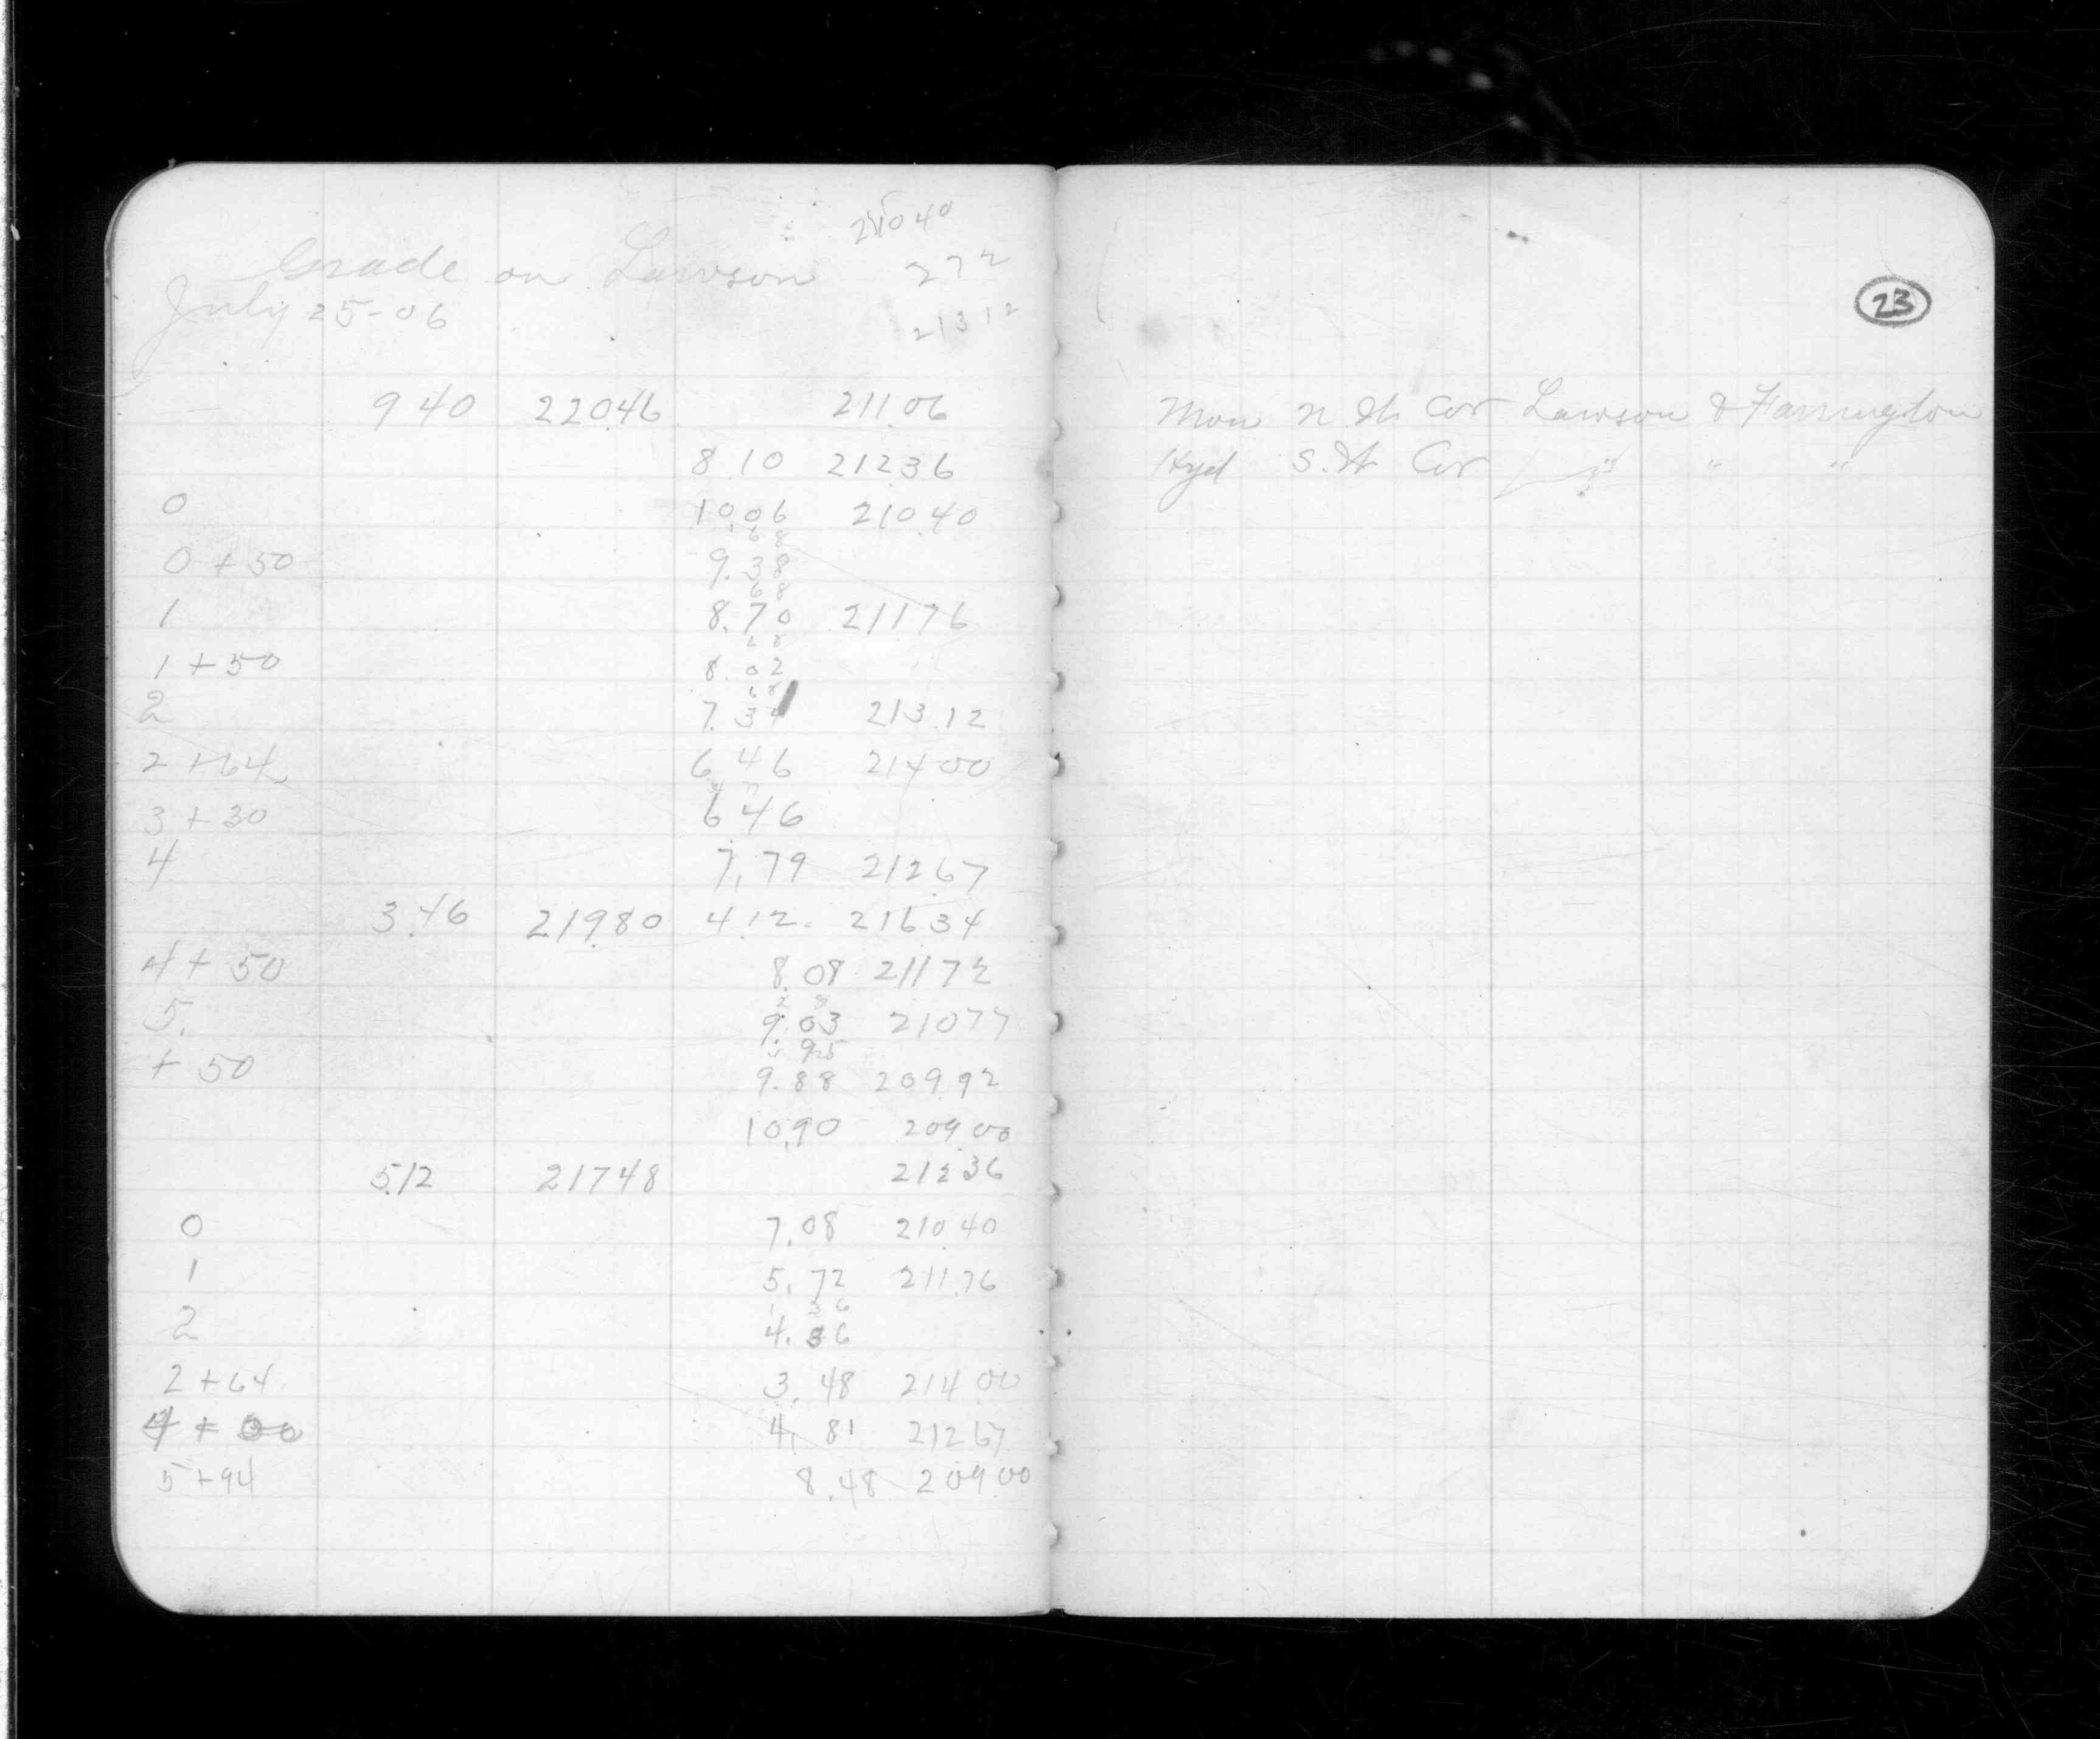 21040
Grade on Lawson 272
July 25-06 21312
9 40 220.46 211.06
8 10 212.36
0 10.06 210.40
68
0 + 50 9.38
68
1 8.70 211 76
68
1 + 50 8.02
68
2 7.34 213.12
2 + 64 6 46 214 00
3 + 30 6 46
4 7.79 212.67
3.46 219.80 4 12. 216 34
4 + 50 8.08 211 72
5. 9.03 210 77
95
+ 50 9.88 209.92
10.90 209 00
5.12 217 48 212 36
0 7.08 210 40
1 5.72 211.76
1 36
2 4.36
2 + 64 3.48 214 00
4 + 00 4.81 212 67
5 + 94 8.48 209.00
23
Mon N.W. Cor Lawson & Farrington
Hyd S.W. Cor " " "